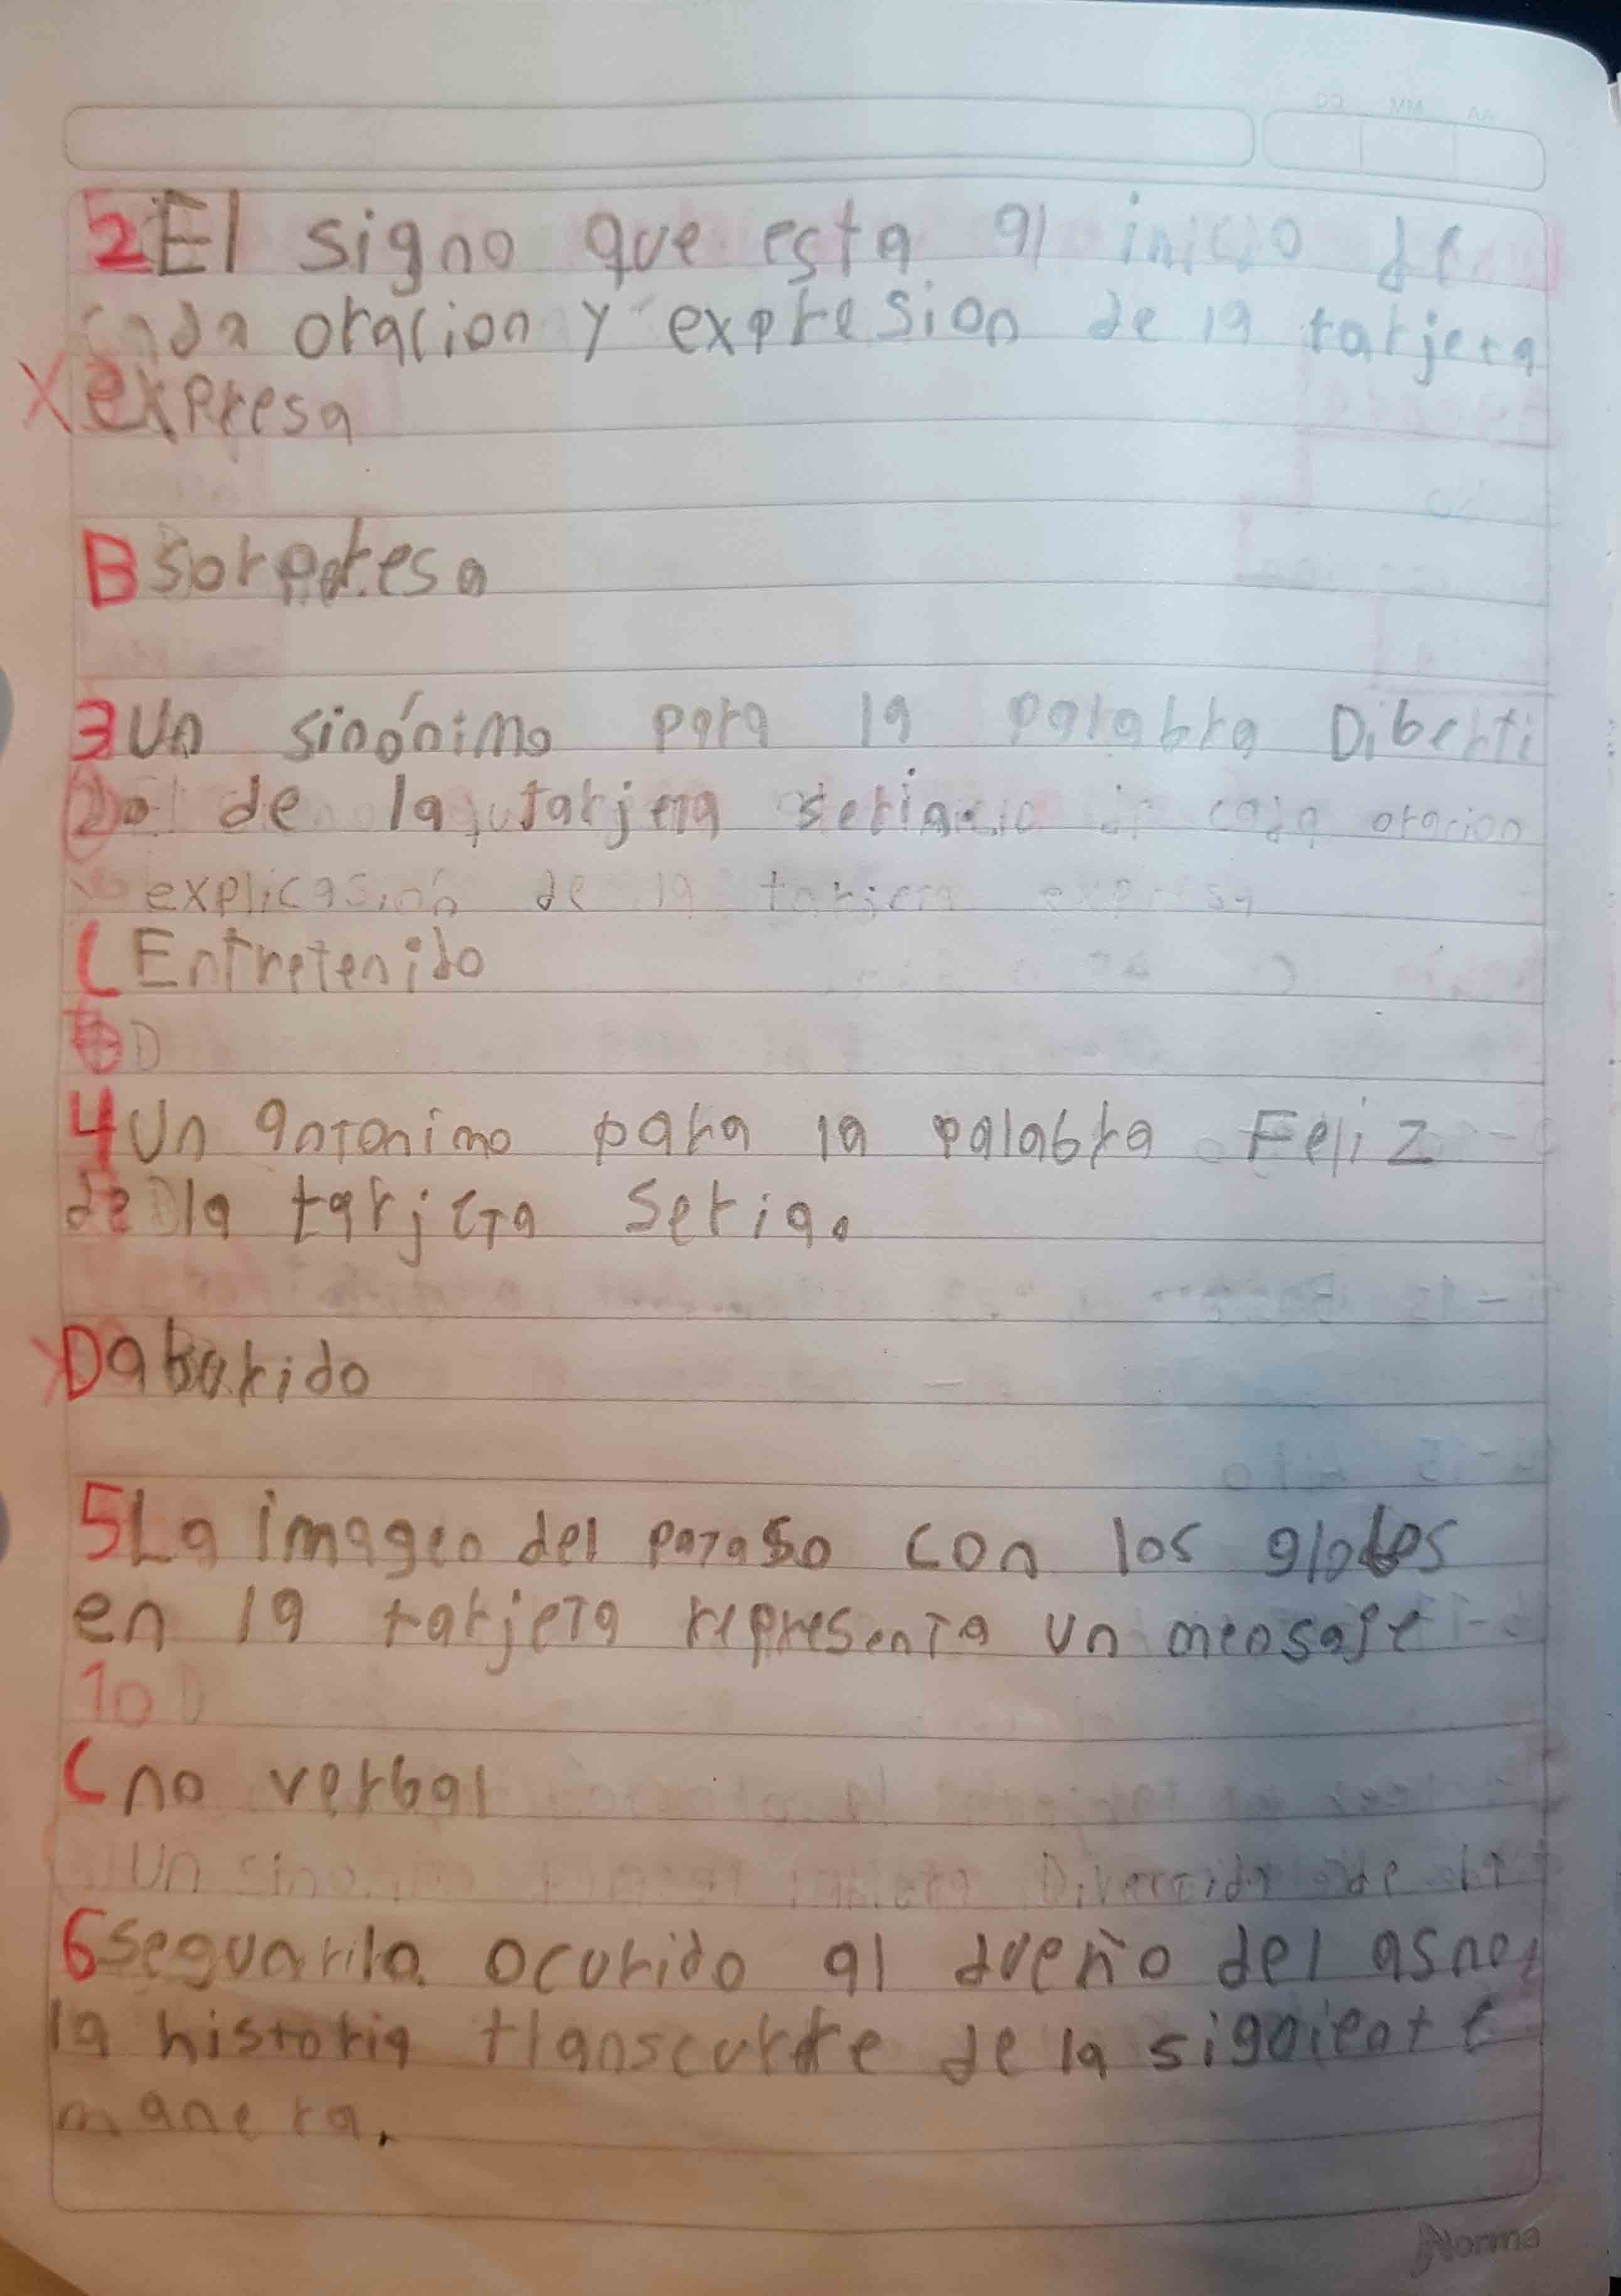 DD MM AA
2 El signo que esta al inicio de
cada oracion y expresion de la tarjeta
X expresa
B sorpresa
3 Un sinónimo para la palabra Diberti
do de la tarjeta seria cada oracion
explicasión de la tarjeta expresa
C Entretenido
D
4 Un antonimo para la palabra Feliz
de la tarjeta seria.
D aburrido
5 La imagen del payaso con los globos
en la tarjeta representa un mensaje
10 D
C no verbal
Un sinonimo Divertido de la
6 Segun lo ocurido al dueño del asno,
la historia transcurre de la siguiente
manera.
Norma